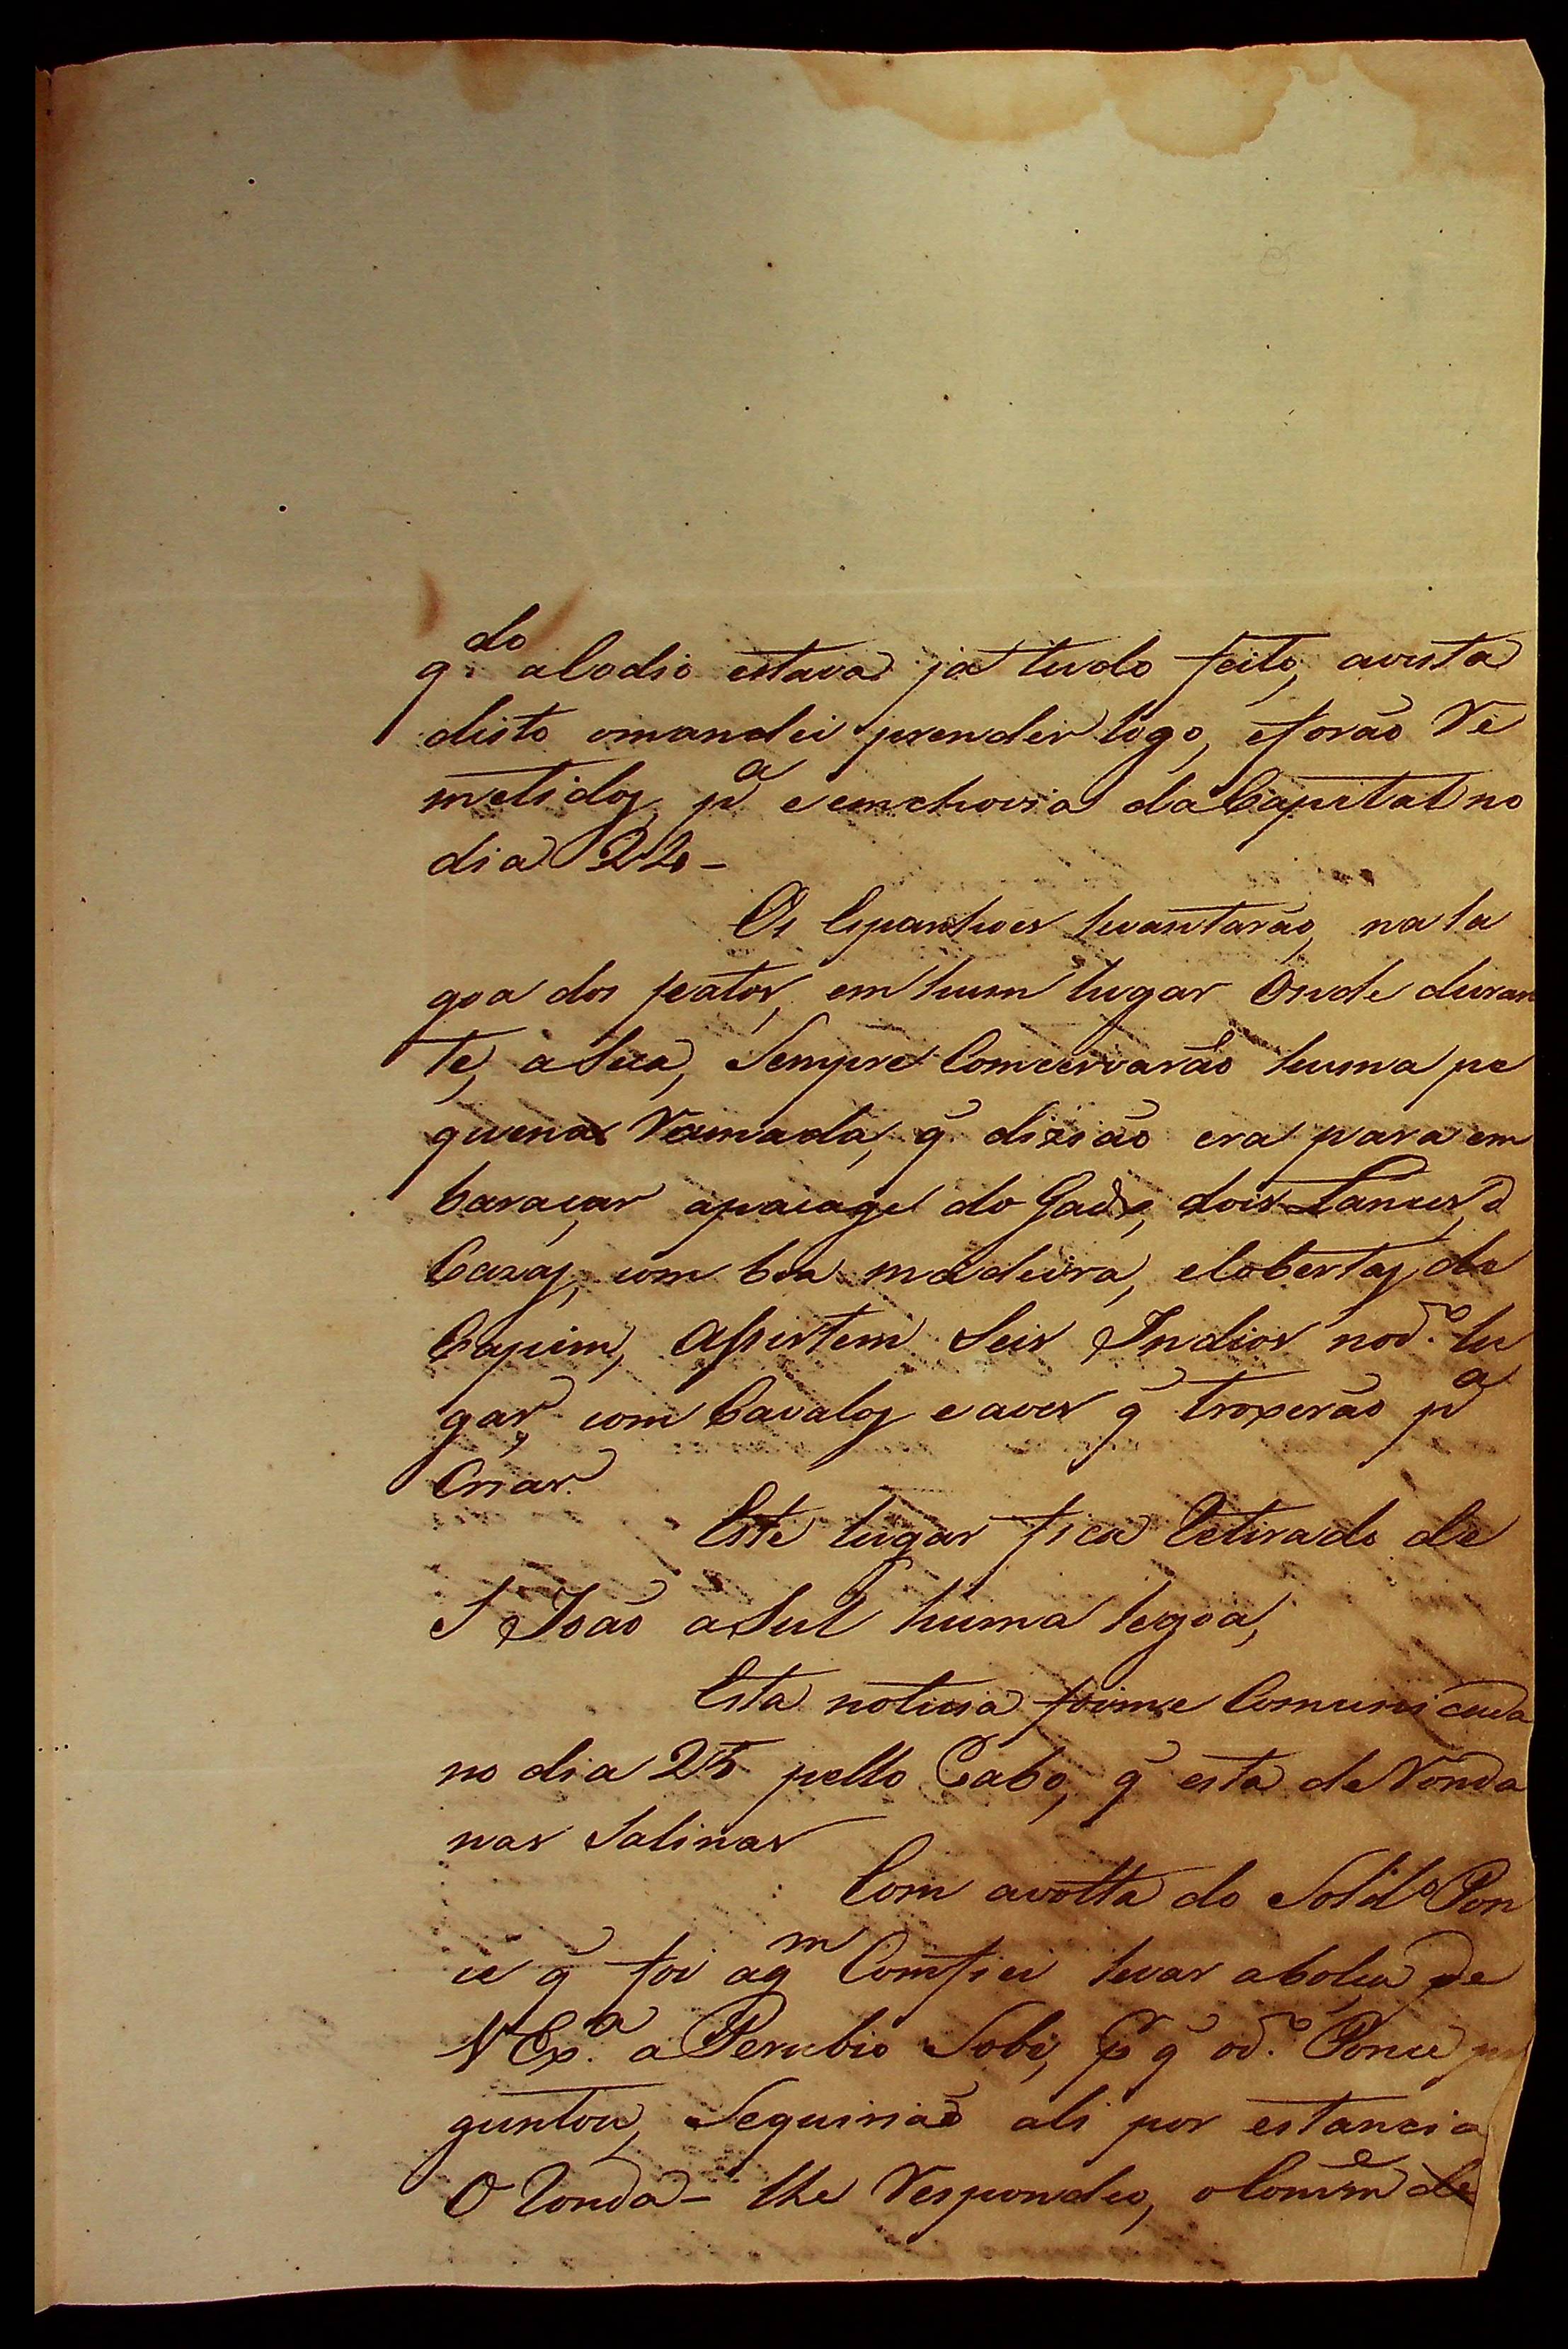 q.do alodio estava já tudo feito, avista
disto omandei prender logo, eforão Re
metidos pa e emchovia da Capital no
dia 22 -
Os Espanhoes levantarão, na la
goa dos patos, em hum lugar Onde duran
te, a Seca, Sempre Comcervarão huma pe
quena Ramada, q̃ dizião era para em
baraçar apaçage do Gado, dois Lances, d
Cazas, com boa madeira, eCobertas, de
Capim, Assistem Seis Indios nod.o lu
gar, com Cavalos e aves q̃ troxerão pa
Criar.
Este lugar fica Retirado de
S João aSul huma legoa,
Esta noticia foime Comunicada
no dia 25 pello Cabo, q̃ esta de Ronda
nas Salinas
Com avolta do Sold.o Pon
ce q̃ foi aqm Comfiei levar abolça de
V Ex.a a Perubio Sobi, q̃ od.o Ponce per
guntou, Seguirião ali por estancia
O Ronda - lhe Respondeo, o Comme de